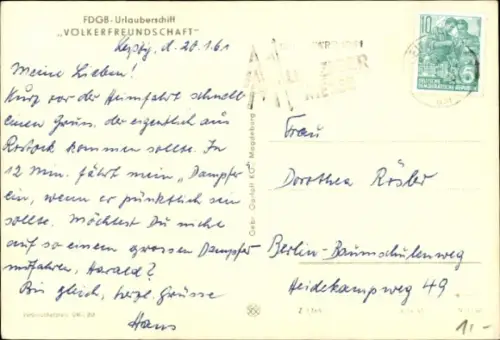 FDGB-Urlauberschiff
„VÖLKERFREUNDSCHAFT"
Leipzig, d. 20.1.61
Meine Lieben!
Kurz vor der Heimfahrt schnell
einen Gruss, der eigentlich aus
Rostock kommen sollte. In
12 Min. fährt mein „Dampfer"
ein, wenn er pünktlich sein
sollte. Möchtest Du nicht
auf so einem grossen Dampfer
mitfahren, Harald?
Bis gleich, herzl. Grüsse
Hans
Gebr. Garloff KG, Magdeburg
10
DEUTSCHE
DEMOKRATISCHE REPUBLIK
MESSE
Frau
Dorothea Rösler
Berlin-Baumschulenweg
Heidekampweg 49
1,-